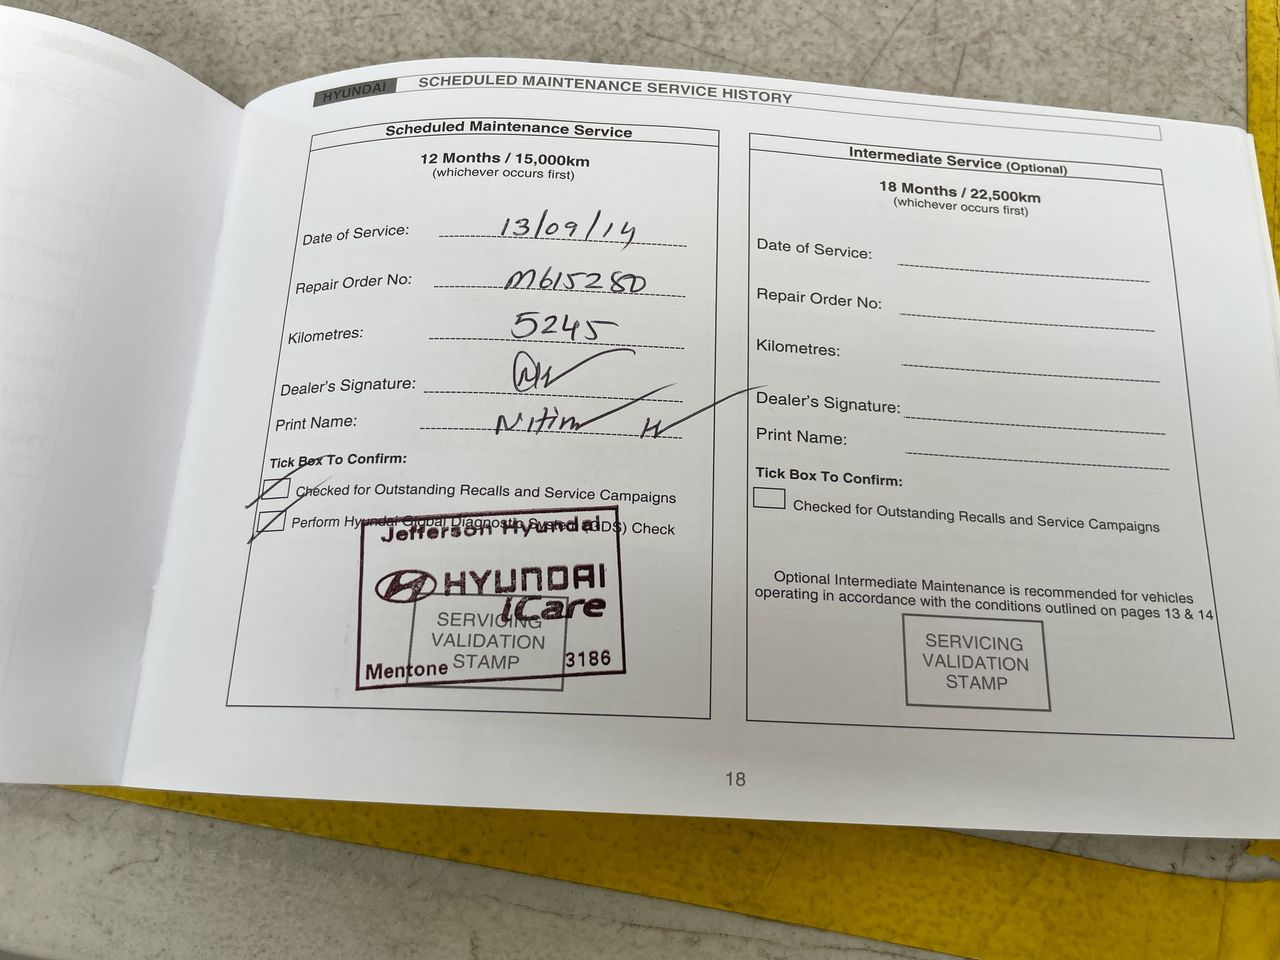 HYUNDAI SCHEDULED MAINTENANCE SERVICE HISTORY
Scheduled Maintenance Service
12 Months / 15,000km
(whichever occurs first)
Date of Service: 13/09/14
Repair Order No: M615280
Kilometres: 5245
Dealer's Signature:
Print Name: Nitin H
Tick Box To Confirm:
Checked for Outstanding Recalls and Service Campaigns
Perform Hyundai Global Diagnostic System (GDS) Check
Jefferson Hyundai
HYUNDAI
iCare
SERVICING
VALIDATION
STAMP
Mentone 3186
Intermediate Service (Optional)
18 Months / 22,500km
(whichever occurs first)
Date of Service:
Repair Order No:
Kilometres:
Dealer's Signature:
Print Name:
Tick Box To Confirm:
Checked for Outstanding Recalls and Service Campaigns
Optional Intermediate Maintenance is recommended for vehicles
operating in accordance with the conditions outlined on pages 13 & 14
SERVICING
VALIDATION
STAMP
18